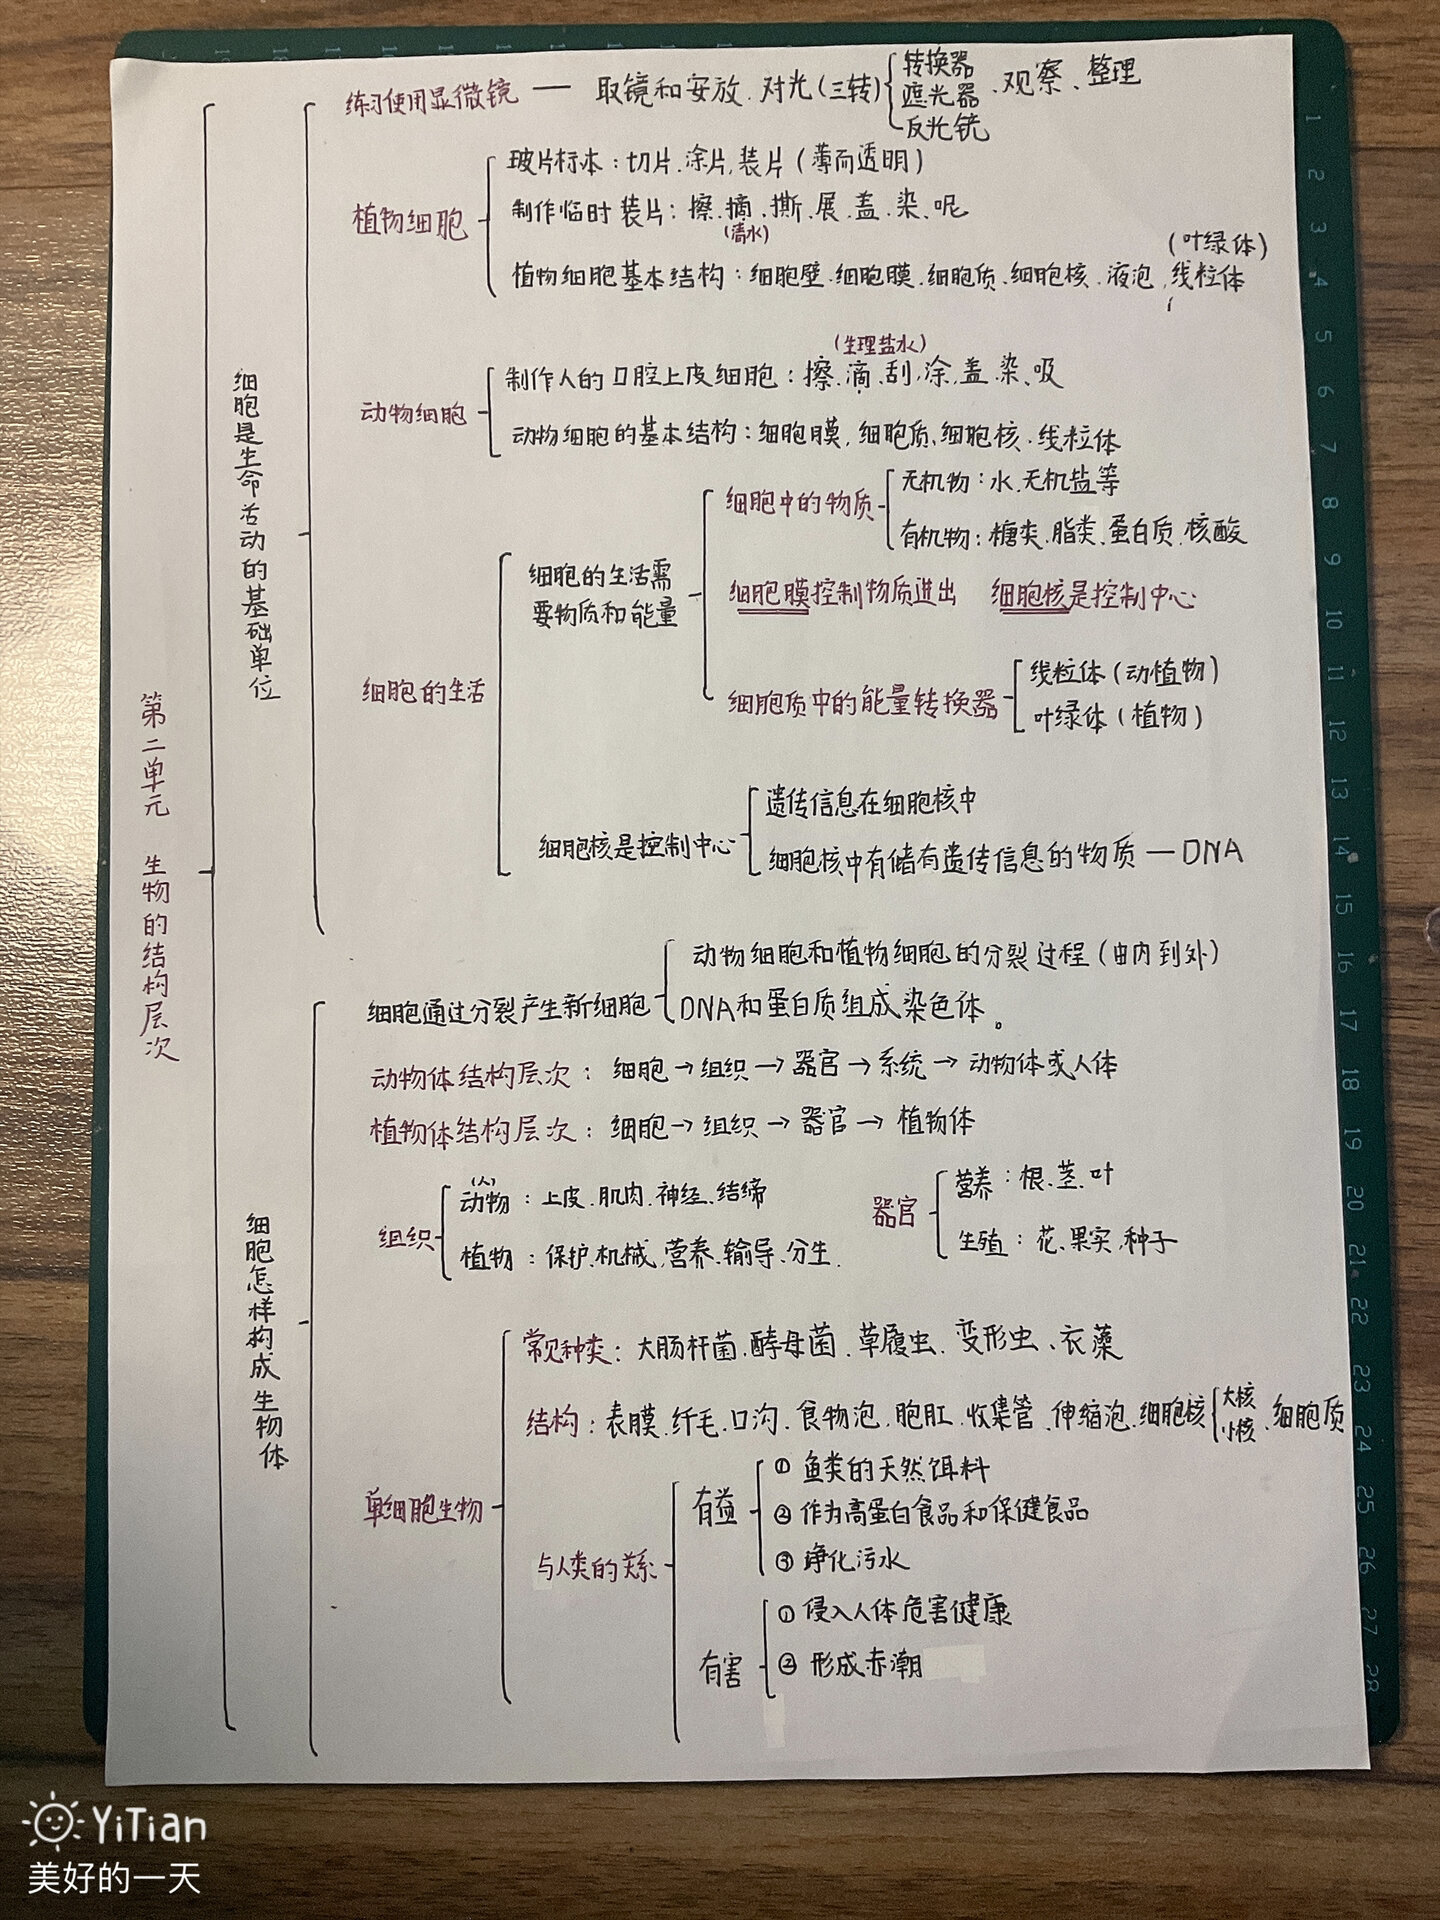 第二单元 生物的结构层次
细胞是生命活动的基础单位
练习使用显微镜 — 取镜和安放、对光(三转) 转换器 遮光器 反光镜 、观察、整理
植物细胞
玻片标本：切片、涂片、装片(薄而透明)
制作临时装片：擦、摘、撕、展、盖、染、呢
(清水)
(叶绿体)
植物细胞基本结构：细胞壁、细胞膜、细胞质、细胞核、液泡、线粒体
动物细胞
(生理盐水)
制作人的口腔上皮细胞：擦、滴、刮、涂、盖、染、吸
动物细胞的基本结构：细胞膜、细胞质、细胞核、线粒体
细胞的生活
细胞的生活需
要物质和能量
细胞中的物质
无机物：水、无机盐等
有机物：糖类、脂类、蛋白质、核酸
细胞膜控制物质进出 细胞核是控制中心
细胞质中的能量转换器
线粒体(动植物)
叶绿体(植物)
细胞核是控制中心
遗传信息在细胞核中
细胞核中有储有遗传信息的物质 — DNA
细胞怎样构成生物体
细胞通过分裂产生新细胞
动物细胞和植物细胞的分裂过程(由内到外)
DNA和蛋白质组成染色体。
动物体结构层次：细胞→组织→器官→系统→动物体或人体
植物体结构层次：细胞→组织→器官→植物体
组织
(人)
动物：上皮、肌肉、神经、结缔
植物：保护、机械、营养、输导、分生
器官
营养：根、茎、叶
生殖：花、果实、种子
单细胞生物
常见种类：大肠杆菌、酵母菌、草履虫、变形虫、衣藻
结构：表膜、纤毛、口沟、食物泡、胞肛、收集管、伸缩泡、细胞核 大核 小核 、细胞质
与人类的关系
有益
① 鱼类的天然饵料
② 作为高蛋白食品和保健食品
③ 净化污水
有害
① 侵入人体危害健康
② 形成赤潮
1
2
3
4
5
6
7
8
9
10
11
12
13
14
15
16
17
18
19
20
21
22
23
24
25
26
27
28
YiTian
美好的一天